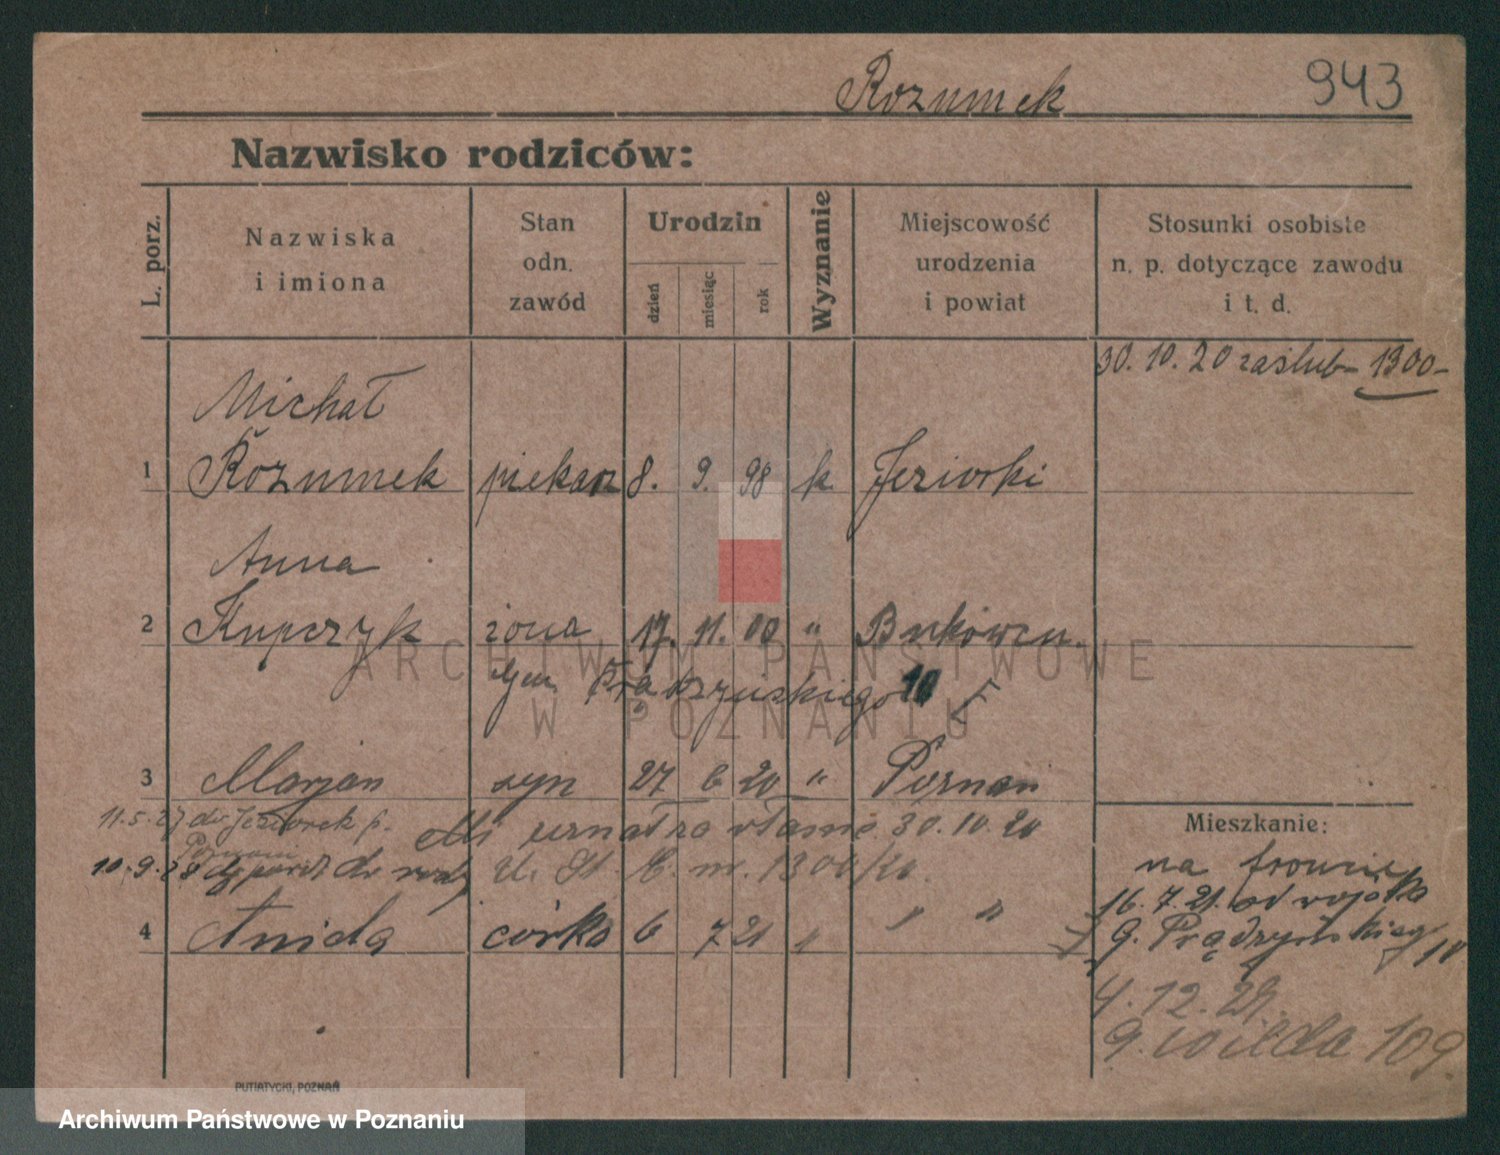 Rozumek 943
Nazwisko rodziców:
L. porz.
Nazwiska
i imiona
Stan
odn.
zawód
Urodzin
dzień
miesiąc
rok
Wyznanie
Miejscowość
urodzenia
i powiat
Stosunki osobiste
n. p. dotyczące zawodu
i t. d.
30. 10. 20 zaślub– 1300–
Michał
1 Rozumek piekarz 8. 9. 98 k Jeziorki
Anna
2 Kupczyk żona 17. 11. 00 " Bukowcu.
ARCHIWUM PAŃSTWOWE
Prądzyńskiego 10
W POZNANIU
3 Marjan syn 27 6 20 " Poznan
Mieszkanie:
11.5.27 do Jeziorek p. uznał za własne 30.10.20
Poznań
na froncie
10.9.28 U. St. C. nr. 1300/20.
16. 7. 21. od wojska
4 córka 6 7 21 " " "
g. Prądzyńskieg/10
4. 12.
g. wilda 109.
PUTIATYCKI, POZNAŃ
Archiwum Państwowe w Poznaniu